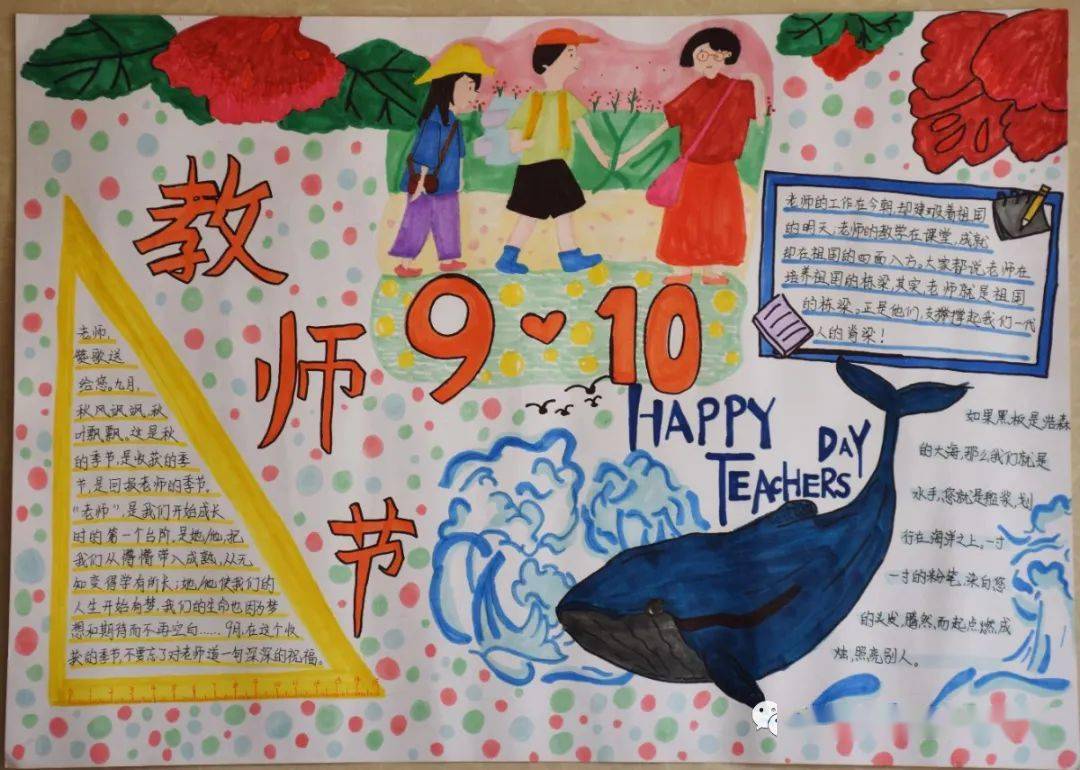 教
师
节
9 10
HAPPY
TEACHERS
DAY
老师，
赞歌送
给您。九月，
秋风飒飒，秋
叶飘飘。这是秋
的季节，是收获的季
节，是回报老师的季节。
“老师”，是我们开始成长
时的第一个台阶，是她/他，把
我们从懵懂带入成熟，从无
知变得学有所长；她/他使我们的
人生开始有梦，我们的生命也因为梦
想和期待而不再空白……9月，在这个收
获的季节，不要忘了对老师道一句深深的祝福。
老师的工作在今朝，却建设着祖国
的明天；老师的教学在课堂，成就
却在祖国的四面八方。大家都说老师在
培养祖国的栋梁，其实，老师就是祖国
的栋梁。正是他们，支撑撑起我们一代
人的脊梁！
如果黑板是浩森
的大海，那么我们就是
水手，您就是粗浆，划
行在海洋之上。一寸
一寸的粉笔，染白您
的头发，腾然，而起点燃成
烛，照亮别人。